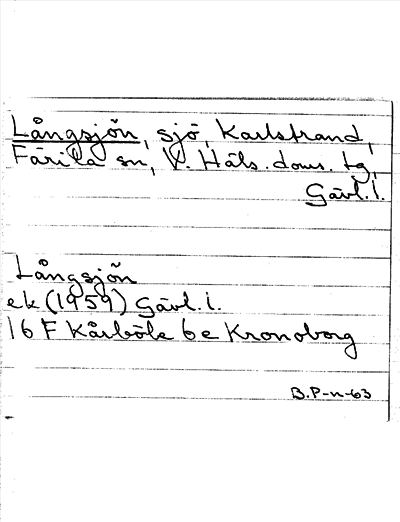 Långsjön, sjö, Karlstrand,
Färila sn, V. Häls. doms. tg,
Gävl. l.
Långsjön
ek (1959) Gävl. l.
16 F Kårböle 6e Kronoborg
B.P-n-63